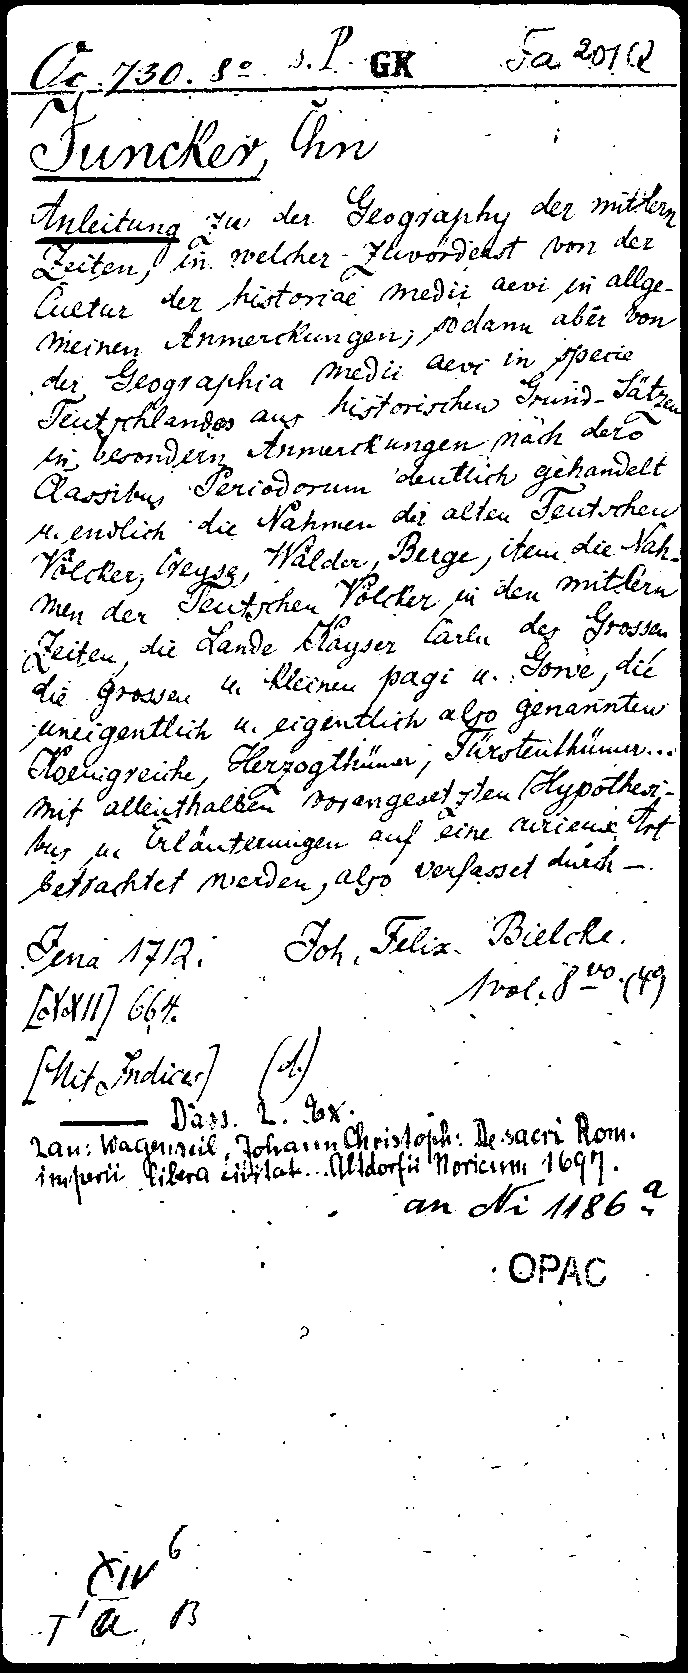 Oc. 730. 8o s. P. GK Fa 201 Q
Juncker, Chn
Anleitung zu der Geography der mittlern
Zeiten, in welcher zuvorderst von der
Cultur der historiae medii aevi in allge-
meinen Anmerckungen, sodann aber von
der Geographia medii aevi in specie
Teutschlandes aus historischen Grund-Sätzen
in besondern Anmerckungen nach dero
Classibus Periodorum deutlich gehandelt
u. endlich die Nahmen der alten Teutschen
Völcker, Creyse, Wälder, Berge, item die Nah-
men der Teutschen Völcker in den mittlern
Zeiten, die Lande Kayser Carln des Grossen
die grossen u. kleinen pagi u. Gowe, die
uneigentlich u. eigentlich also genannten
Koenigreiche, Herzogthümer, Fürstenthümer...
mit allenthalben vorangesetzten Hypothesi-
bus u. Erläuterungen auf eine curieuse Art
betrachtet werden, also verfasset durch —.
Jena 1712. Joh. Felix Bielcke.
1 vol. 8vo. (4o)
[XXII] 664.
[Mit Indices] (A.)
——— Dass. 2. Ex.
2 an: Wagenseil, Johann Christoph: De sacri Rom.
imperii libera civitat... Altdorfii Noricum 1697.
an Ni 1186 a
OPAC
XIV 6